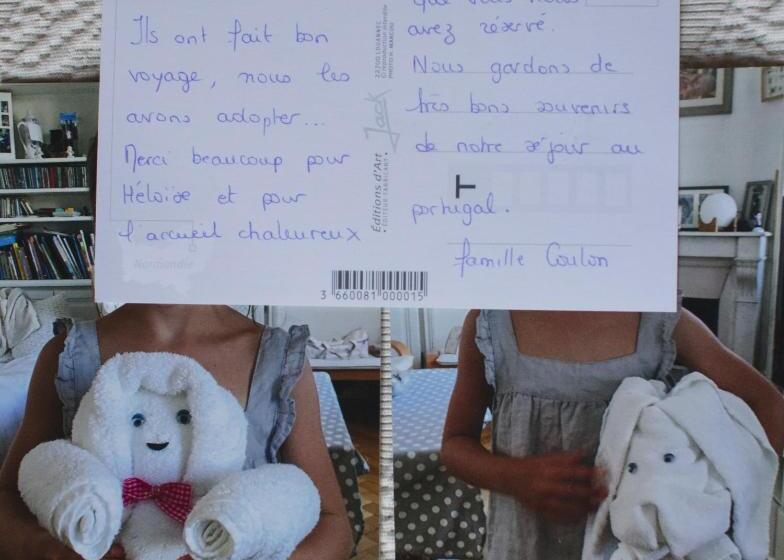 Ils ont fait bon
voyage, nous les
avons adopter...
Merci beaucoup pour
Héloïse et pour
l'accueil chaleureux
que vous nous
avez réservé.
Nous gardons de
très bons souvenirs
de notre séjour au
portugal.
famille Coulon
Jack
Éditions d'Art
• ÉDITEUR FABRICANT •
22700 LOUANNEC
© reproduction interdite
T
Normandie
3 660081 000015